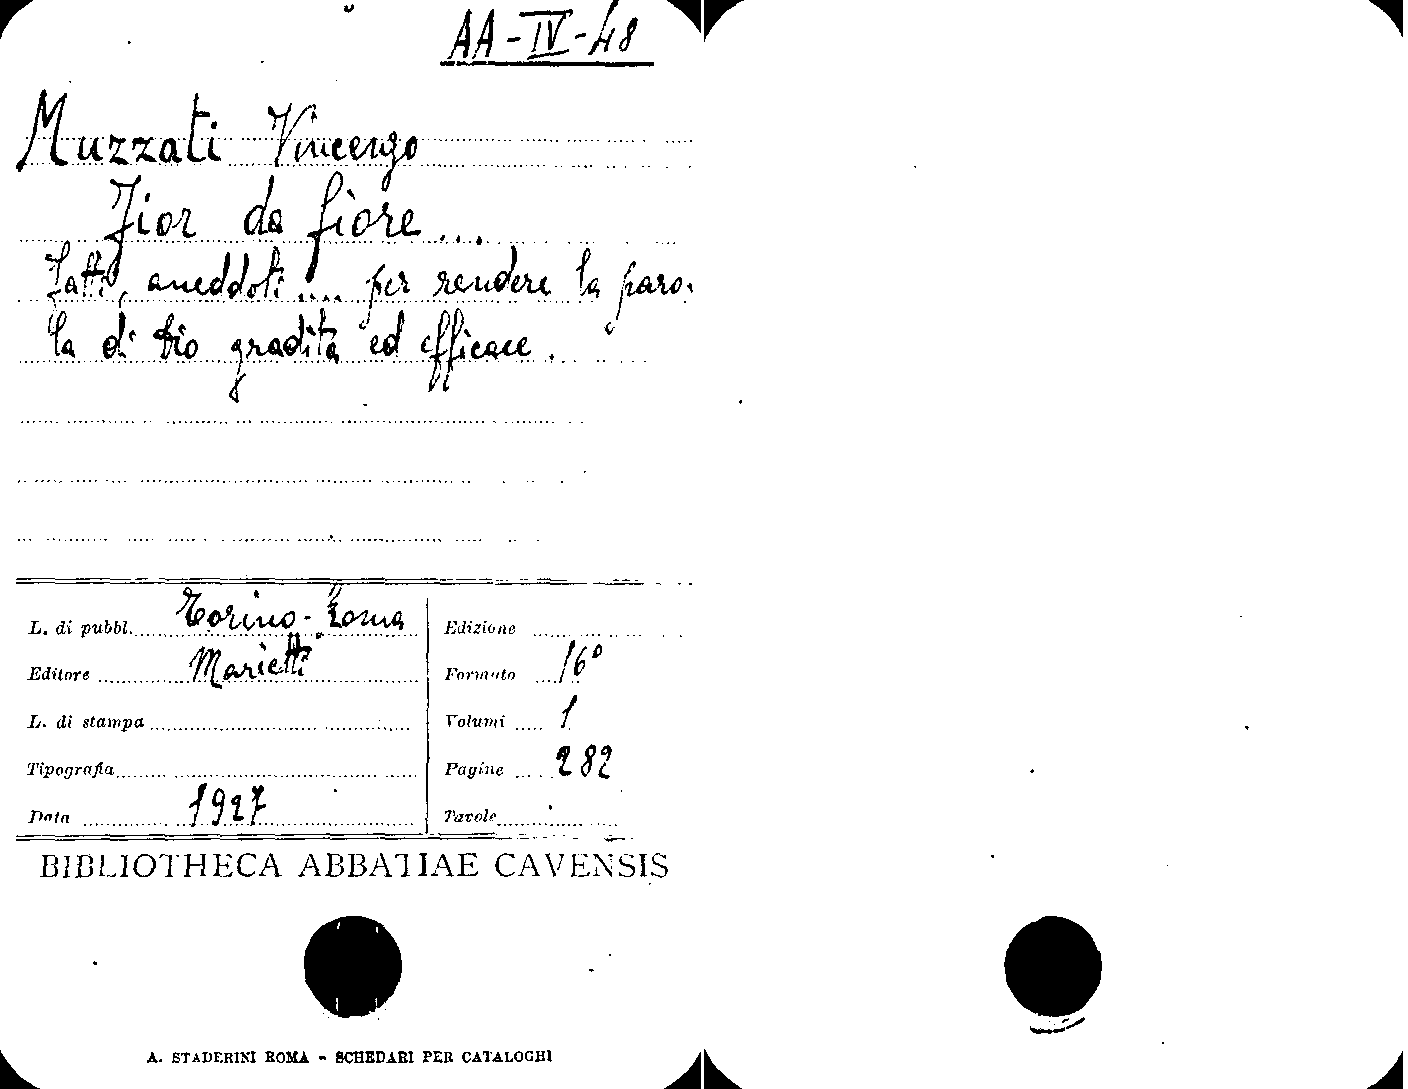 AA-IV-48
Muzzati Vincenzo
Fior da fiore...
Fatti, aneddoti.... per rendere la paro-
la di Dio gradita ed efficace.
L. di pubbl. Torino-Roma
Edizione
Editore Marietti
Formato 16°
L. di stampa
Volumi 1
Tipografia
Pagine 282
Data 1927
Tavole
BIBLIOTHECA ABBATIAE CAVENSIS
A. STADERINI ROMA - SCHEDARI PER CATALOGHI